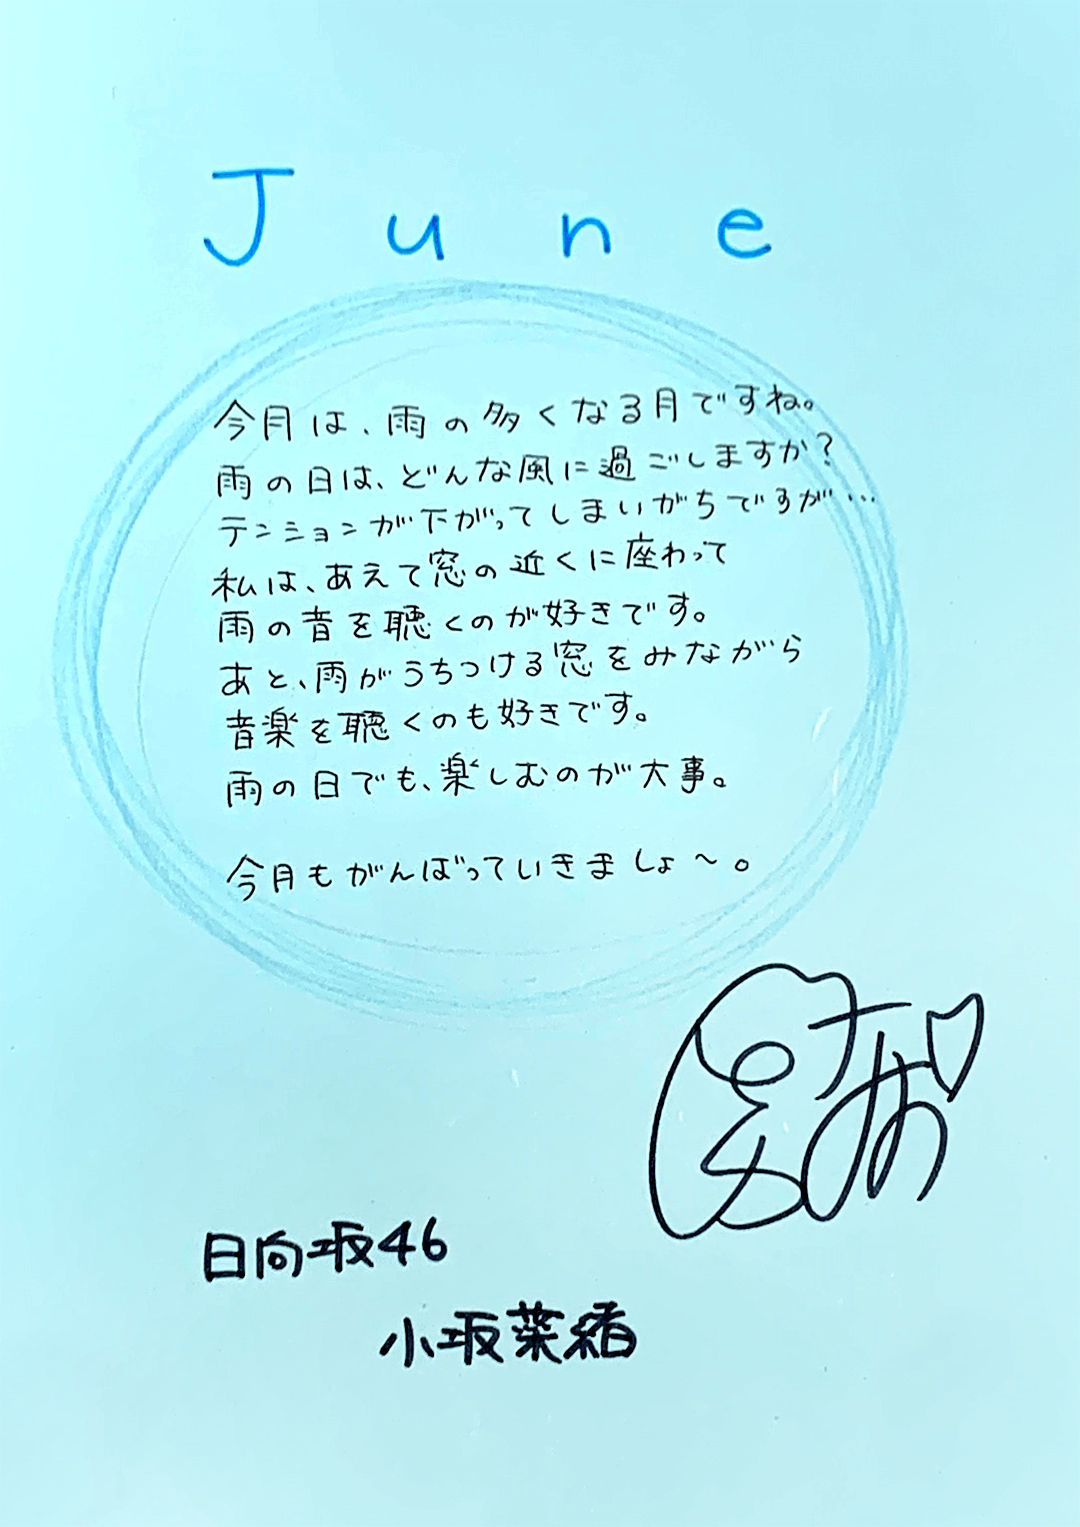 June
今月は、雨の多くなる月ですね。
雨の日は、どんな風に過ごしますか？
テンションが下がってしまいがちですが…
私は、あえて窓の近くに座わって
雨の音を聴くのが好きです。
あと、雨がうちつける窓をみながら
音楽を聴くのも好きです。
雨の日でも、楽しむのが大事。
今月もがんばっていきましょ〜。
日向坂46
小坂菜緒